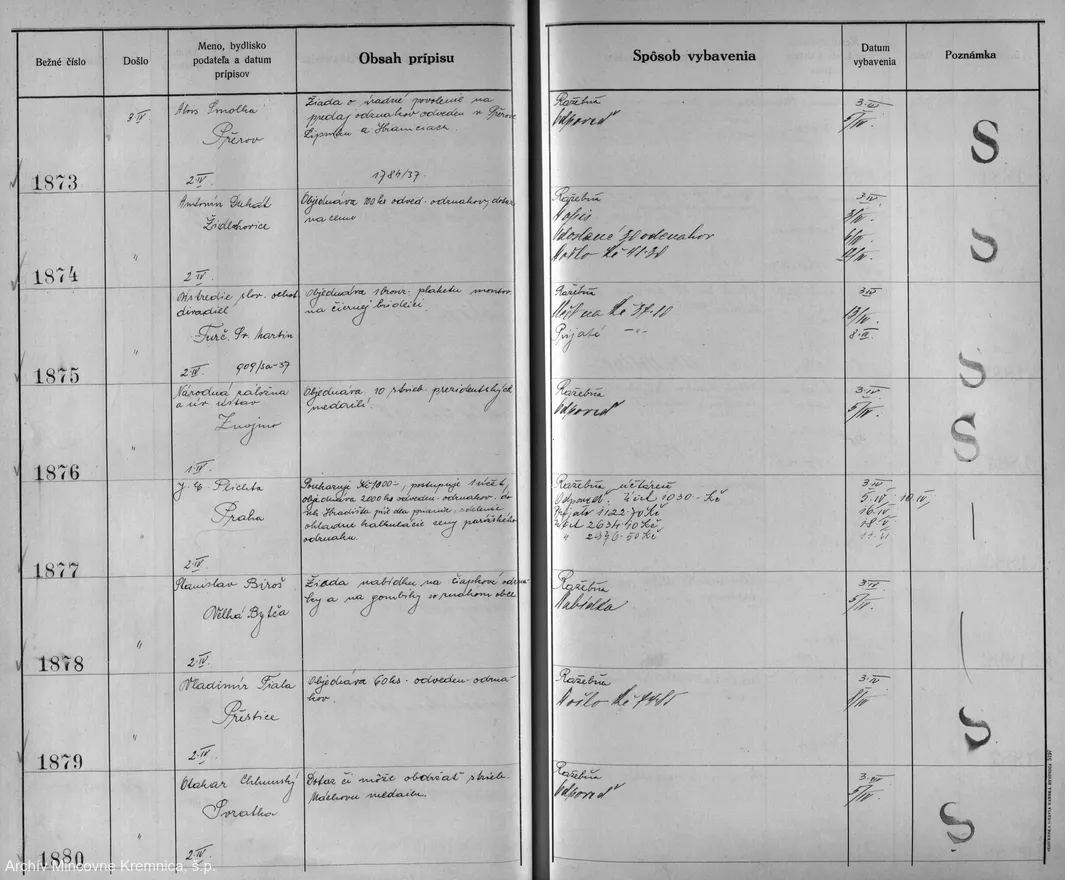 Bežné číslo
Došlo
Meno, bydlisko
podateľa a datum
prípisov
Obsah prípisu
Spôsob vybavenia
Datum
vybavenia
Poznámka
1873
3·IV
Alois Smolka
Přerov
2·IV.
Žiada o úradné povolenie na
predaj odznakov odveden v Přerove
Lipníku a Hraniciach.
1784/37.
Ražebňa
Odpoveď
3·IV
5/IV.
S
1874
"
Antonín Dukát
Židlchovice
2·IV
Objednáva 100 ks odved. odznakov, dotaz
na cenu
Ražebňa
Odoslané 30 odznakov
Došlo Kč 41·30
3·IV.
S
1875
"
Ústredie slov. ochot.
divadiel
Turč. Sv. Martin
2·IV 909/Sa-37
Objednáva 1 bronz. plaketu montov.
na čiernej bridlici.
Ražebňa
Kč 37·10
Prijaté -"-
3·IV
8·IV.
S
1876
"
Národná záložna
a úv. ústav
Znojmo
1·IV.
Objednáva 10 strieb. prezidentských
medailí.
Ražebňa
Odpoveď
3·IV
5/IV.
S
1877
J. E. Plichta
Praha
2·IV
Poukazuje Kč 1000-, postupuje
objednáva 2000 ks odveden. odznakov do
Uh. Hradišťa
ohladne kalkulácie ceny
odznaku.
Ražebňa účtáreň
Odpoveď. Účet 1030·- Kč
Prijato 1122·70 Kč
Účet 2634·40 Kč
" 2376·50 Kč
3·IV
5·IV 10·IV,
16·IV
18·IV
1878
"
Stanislav Biroš
Velká Bytča
2·IV.
Žiada nabídku na čiapkové odzna-
ky a na gombíky so znakom obce
Ražebňa
Nabídka
3·IV
5/IV.
1879
"
Vladimír Fiala
Přeštice
2·IV
Objednáva 60 ks. odveden. odzna-
kov.
Ražebňa
Došlo Kč
3·IV
8/IV
S
1880
"
Otakar Chlumský
Svratka
2·IV
Dotaz či môže obdržať strieb.
Máchovu medailu.
Ražebňa
Odpoveď
3·IV
5/IV.
S
Archív Mincovne Kremnica, š.p.